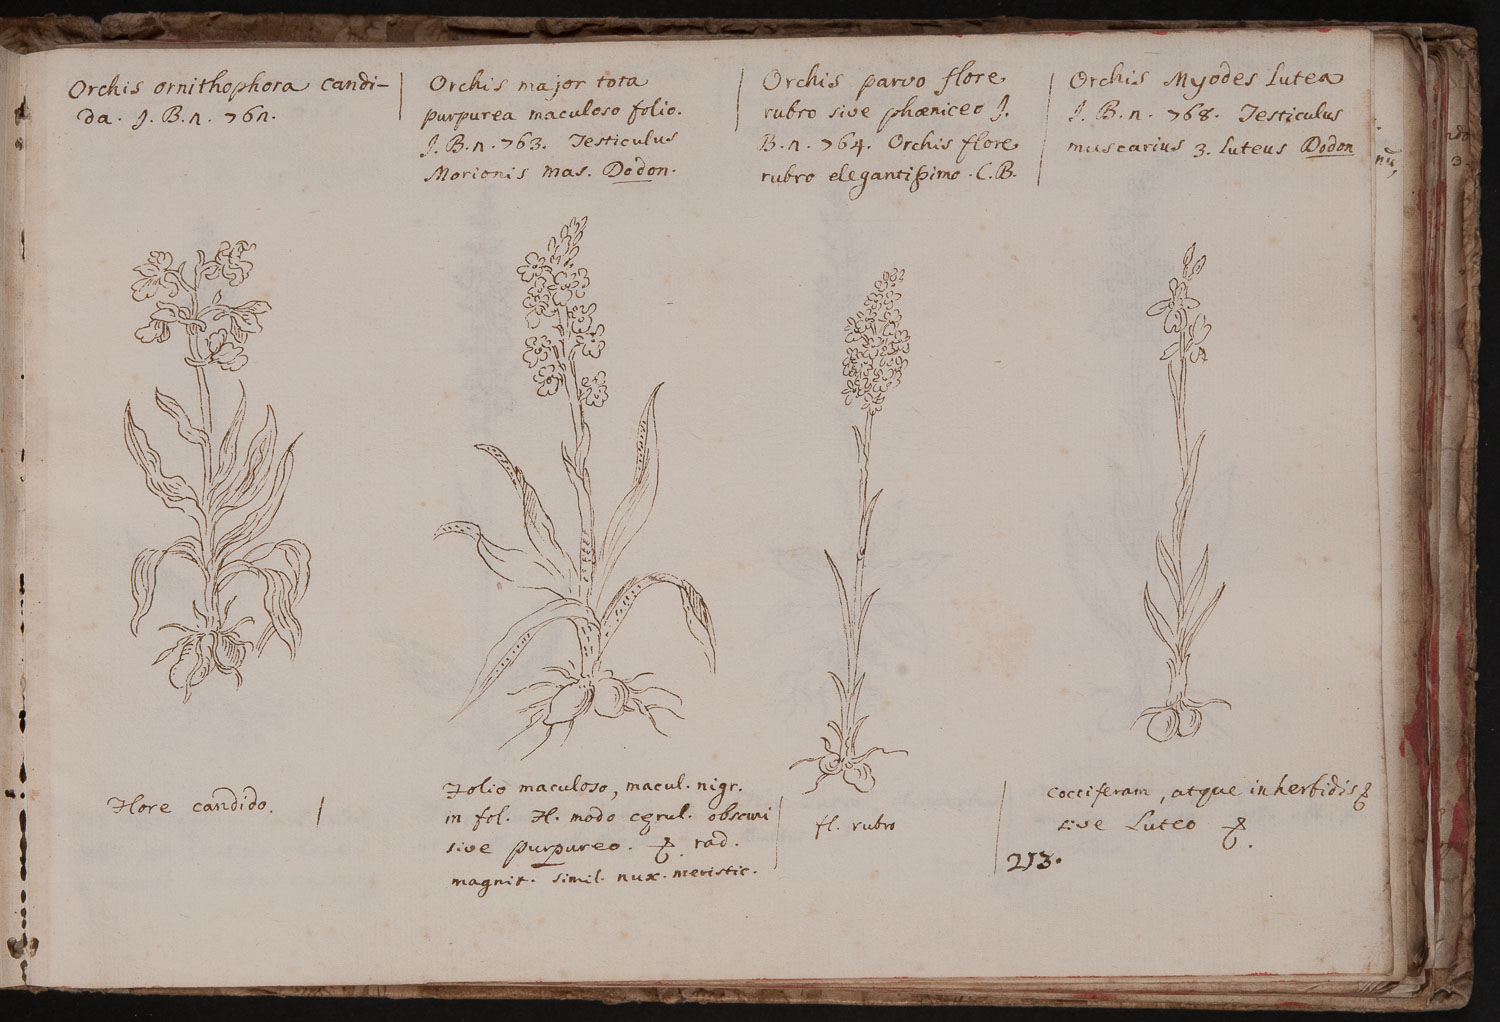 Orchis ornithophora candi-
da. J. B. n. 761.
Orchis major tota
purpurea maculoso folio.
J. B. n. 763. Testiculus
Morionis mas. Dodon.
Orchis parvo flore
rubro sive phæniceo J.
B. n. 764. Orchis flore
rubro elegantißimo. C. B.
Orchis Myodes lutea
J. B. n. 768. Testiculus
muscarius 3. luteus Dodon
Flore candido.
Folio maculoso, macul. nigr.
in fol. Fl. modo cęrul. obscuri
sive purpureo. rad.
magnit. simil. nux.
fl. rubro
cocciferam, atque in herbidis
sive Luteo
213.
3.